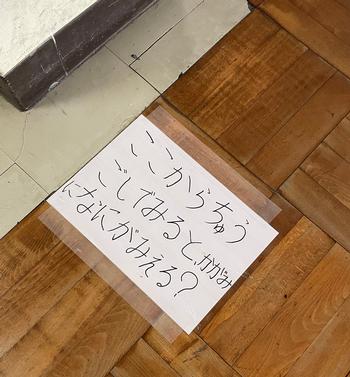 ここからちゅう
ごしでみると、かがみ
になにがみえる?